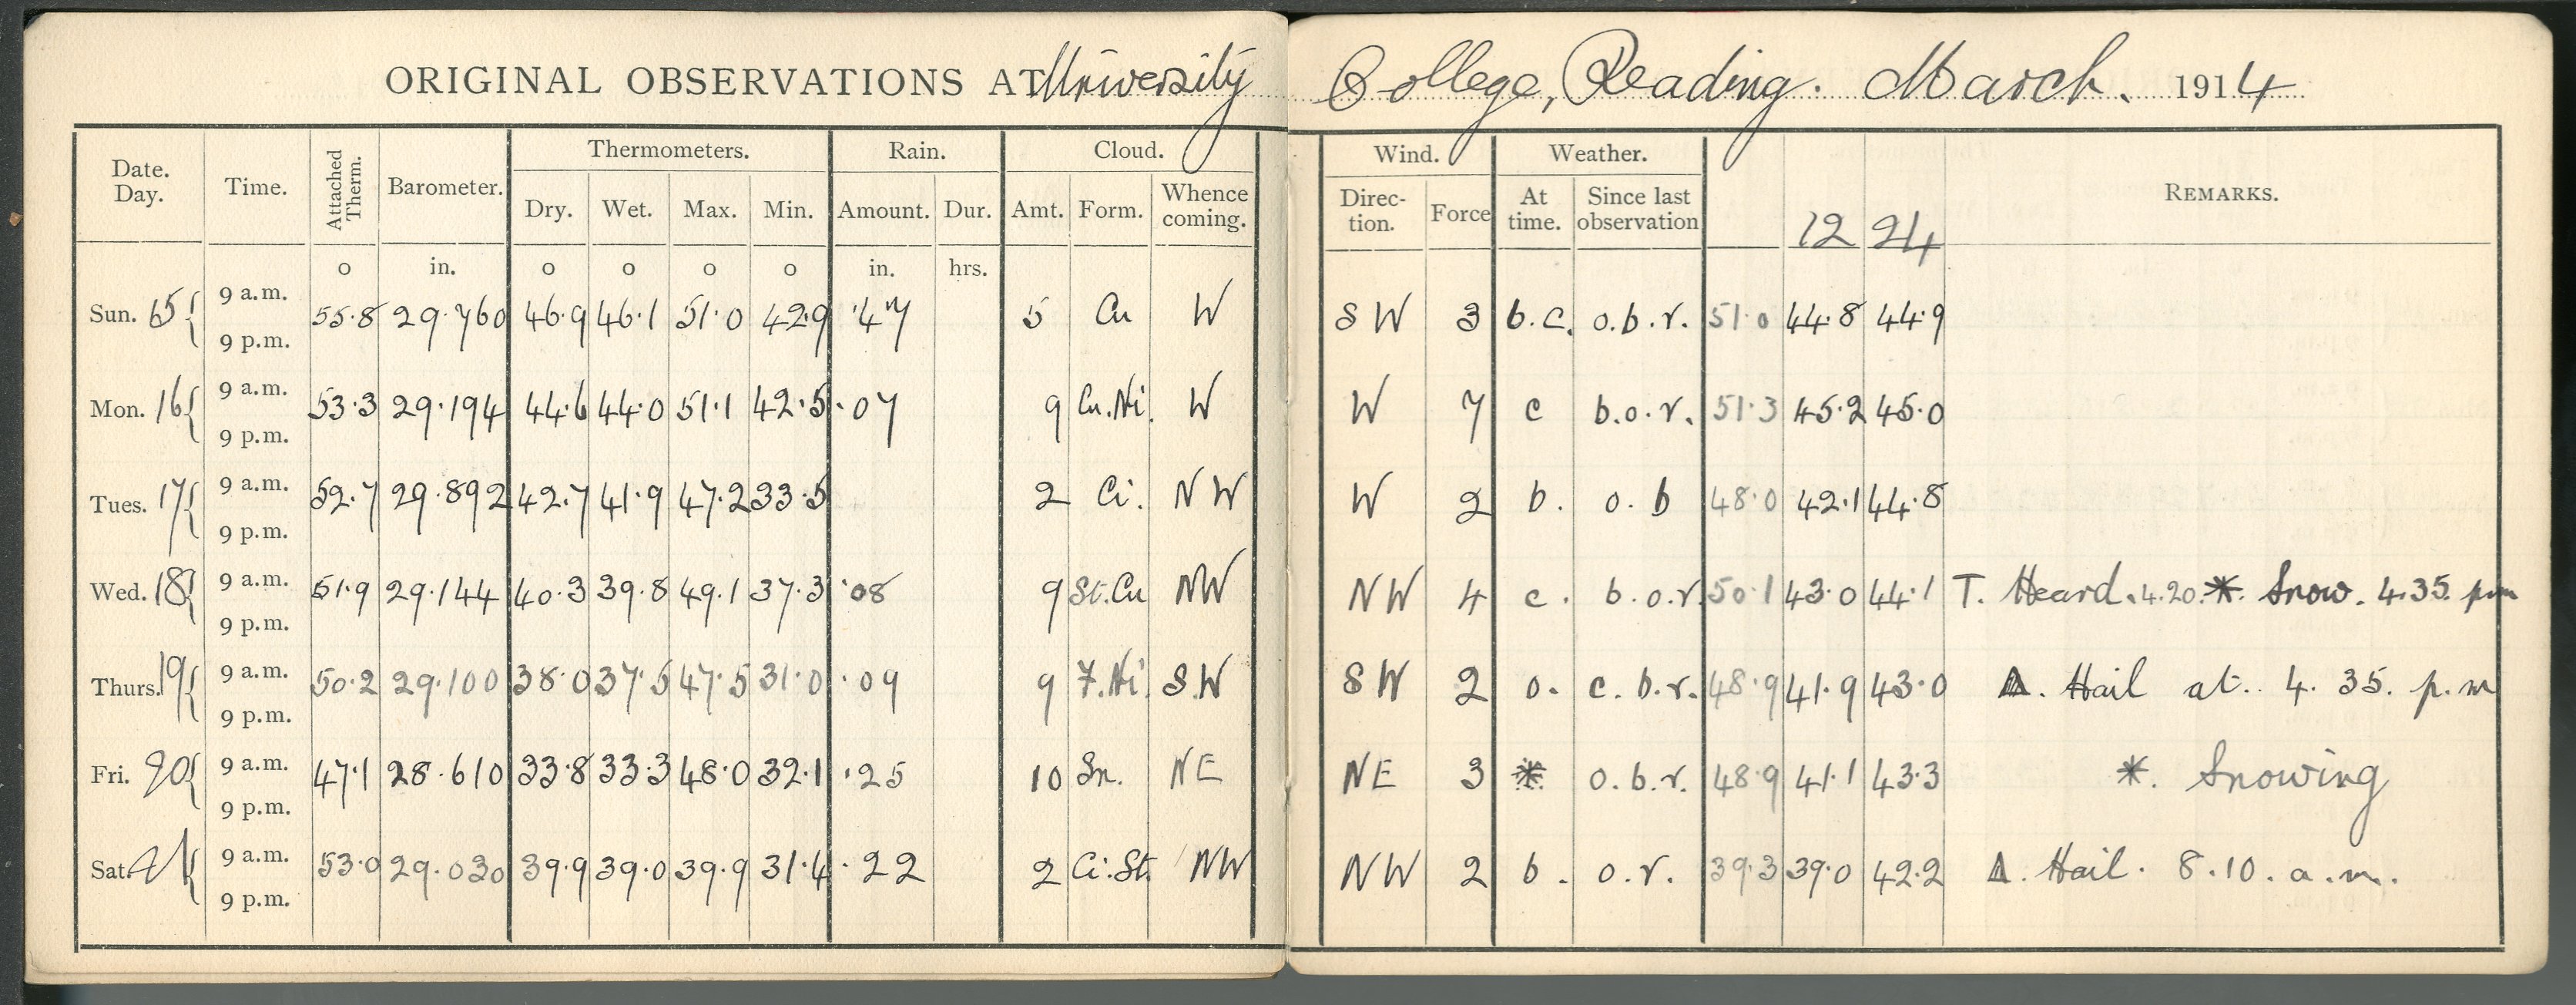 ORIGINAL OBSERVATIONS AT University College, Reading. March. 1914
Date. Day. Time. Attached Therm. Barometer. Thermometers. Rain. Cloud. Wind. Weather. REMARKS.
Dry. Wet. Max. Min. Amount. Dur. Amt. Form. Whence coming. Direc- tion. Force At time. Since last observation 12 24
o in. o o o o in. hrs.
Sun. 15 { 9 a.m. 55.8 29.760 46.9 46.1 51.0 42.9 .47 5 Cu W SW 3 b.c. o.b.r. 51.0 44.8 44.9
9 p.m.
Mon. 16 { 9 a.m. 53.3 29.194 44.6 44.0 51.1 42.5 .07 9 Cu.Ni. W W 7 c b.o.r. 51.3 45.2 45.0
9 p.m.
Tues. 17 { 9 a.m. 52.7 29.892 42.7 41.9 47.2 33.5 2 Ci. NW W 2 b. o.b 48.0 42.1 44.8
9 p.m.
Wed. 18 { 9 a.m. 51.9 29.144 40.3 39.8 49.1 37.3 .08 9 St.Cu NW NW 4 c. b.o.r. 50.1 43.0 44.1 T. Heard. 4.20. *. Snow. 4.35. pm
9 p.m.
Thurs. 19 { 9 a.m. 50.2 29.100 38.0 37.5 47.5 31.0 .09 9 F.Ni. S.W SW 2 o. c.b.r. 48.9 41.9 43.0 ▲. Hail at. 4. 35. p.m
9 p.m.
Fri. 20 { 9 a.m. 47.1 28.610 33.8 33.3 48.0 32.1 .25 10 Sn. NE NE 3 * o.b.r. 48.9 41.1 43.3 *. Snowing
9 p.m.
Sat. 21 { 9 a.m. 53.0 29.030 39.9 39.0 39.9 31.4 .22 2 Ci.St. NW NW 2 b. o.r. 39.3 39.0 42.2 ▲. Hail. 8.10. a.m.
9 p.m.